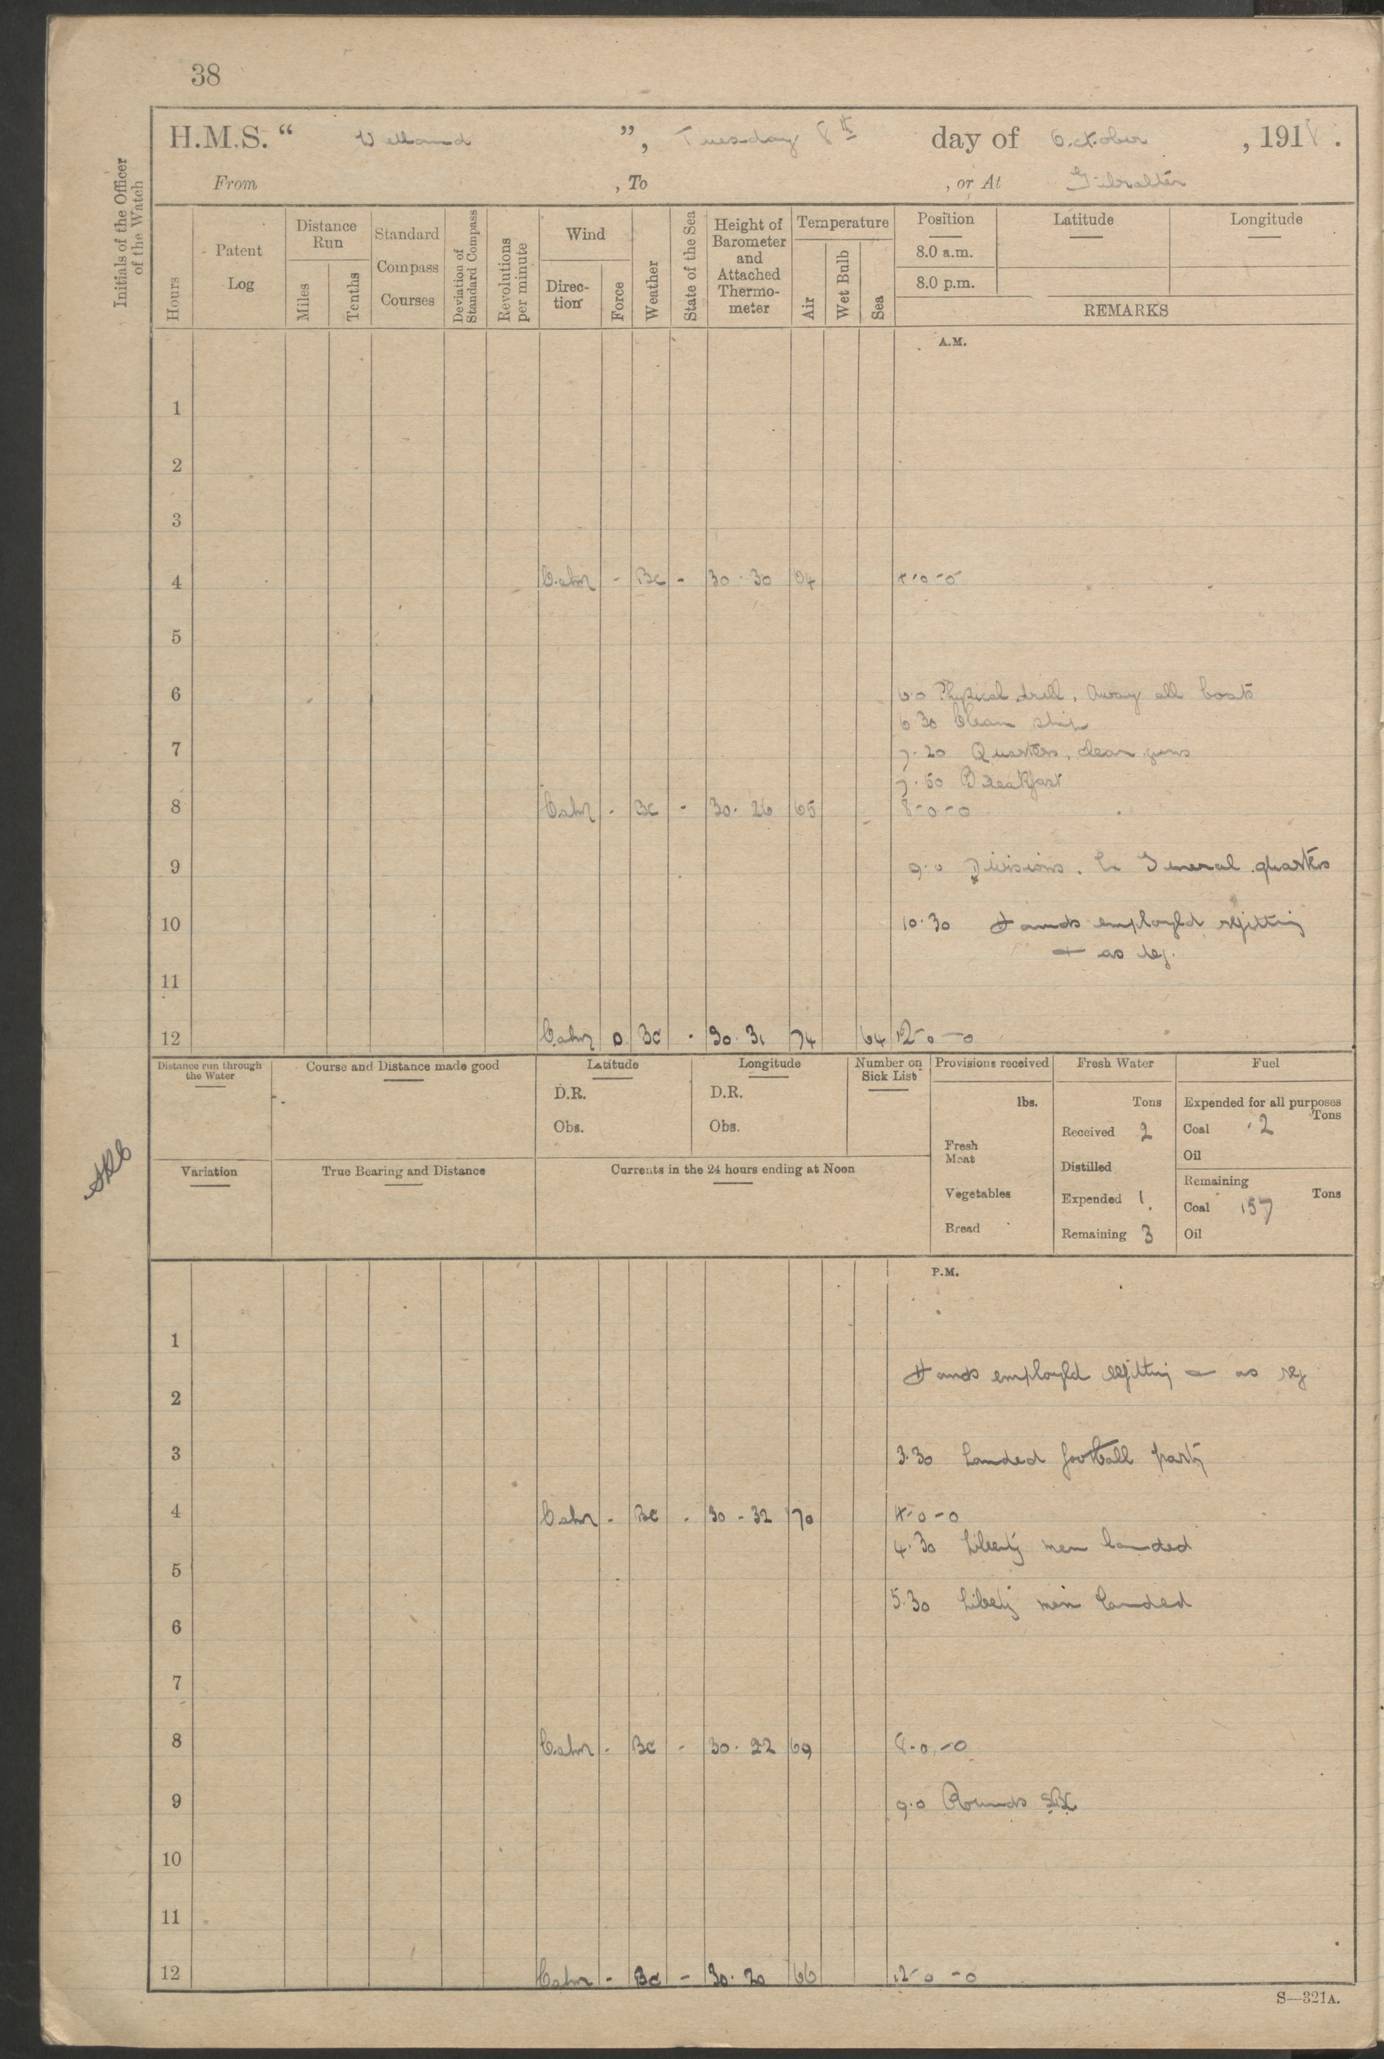 38
H.M.S. “ Welland ”, Tuesday 8th day of October, 1918.
From , To , or At Gibralter
Initials of the Officer of the Watch
Hours
Patent Log
Distance Run
Miles
Tenths
Standard Compass Courses
Deviation of Standard Compass
Revolutions per minute
Wind
Direction
Force
Weather
State of the Sea
Height of Barometer and Attached Thermometer
Temperature
Air
Wet Bulb
Sea
Position Latitude Longitude
8.0 a.m.
8.0 p.m.
REMARKS
A.M.
1
2
3
4 Calm - BC - 30.30 64 4-0-0
5
6 6.0 Physical drill, Away all boats
6 30 Clean ship
7 7.20 Quarters, clean guns
7.50 Breakfast
8 Calm - BC - 30.26 65 8-0-0
9 9.0 Divisions. General quarters
10 10.30 Hands employed refitting
+ as req.
11
12 Calm 0 BC - 30.31 74 64 12-0-0
Distance run through the Water
Course and Distance made good
Latitude
D.R.
Obs.
Longitude
D.R.
Obs.
Number on Sick List
Provisions received
lbs.
Fresh Meat
Vegetables
Bread
Fresh Water
Tons
Received 2
Distilled
Expended 1.
Remaining 3
Fuel
Expended for all purposes
Tons
Coal .2
Oil
Remaining
Tons
Coal 157
Oil
Variation
True Bearing and Distance
Currents in the 24 hours ending at Noon
P.M.
1
Hands employed refitting + as req
2
3 3.30 Landed football party
4 Calm - BC - 30-32 70 4-0-0
4.30 Liberty men landed
5
5.30 Liberty men landed
6
7
8 Calm - BC - 30.22 69 8-0-0
9 9.0 Rounds
10
11
12 Calm - BC - 30.20 66 12-0-0
S—321A.